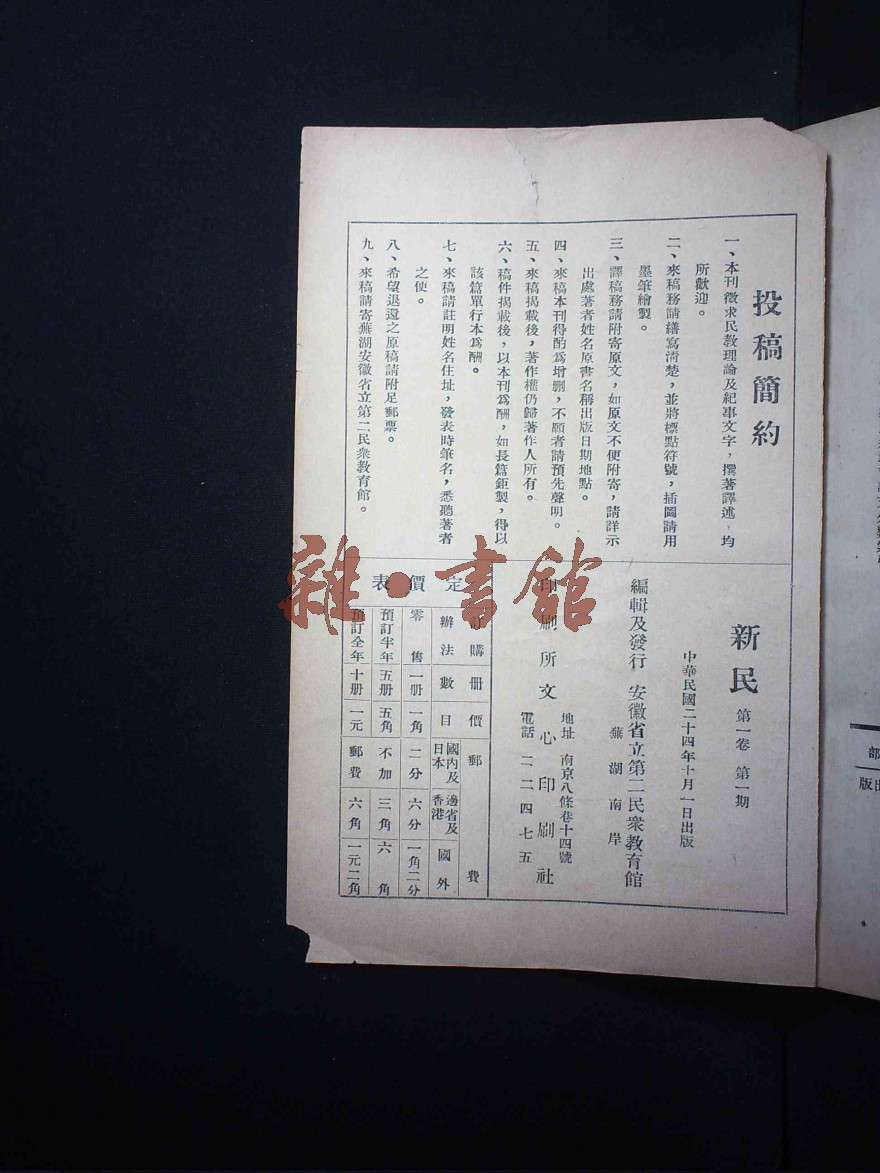 投稿簡約
一、本刊徵求民教理論及紀事文字，撰著譯述，均
所歡迎。
二、來稿務請繕寫清楚，並將標點符號，插圖請用
墨筆繪製。
三、譯稿務請附寄原文，如原文不便附寄，請詳示
出處著者姓名原書名稱出版日期地點。
四、來稿本刊得酌為增删，不願者請預先聲明。
五、來稿揭載後，著作權仍歸著作人所有。
六、稿件揭載後，以本刊為酬，如長篇鉅製，得以
該篇單行本為酬。
七、來稿請註明姓名住址，發表時筆名，悉聽著者
之便。
八、希望退還之原稿請附足郵票。
九、來稿請寄蕪湖安徽省立第二民衆教育館。
新民 第一卷 第一期
中華民國二十四年十月一日出版
編輯及發行 安徽省立第二民衆教育館
蕪湖南岸
印刷所 文心印刷社
地址 南京八條巷十四號
電話 二二四七五
定價表
訂購辦法 册數 價目 郵費
國內及日本 邊省及香港 國外
零售 一册 一角 二分 六分 一角二分
預訂半年 五册 五角 不加 三角 六角
預訂全年 十册 一元 郵費 六角 一元二角
雜·書館
部
出版